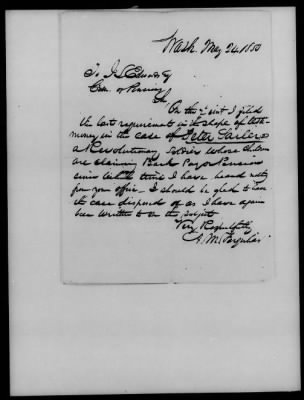 Wash. May 24, 1850
To J L Edwards
Com of Pensions
Sir
On the inst I filed
the last requirements in the shape of testi-
mony in the case of Peter
a Revolutionary Soldier whose children
are claiming Back Pay or Pension
since which time I have heard nothing
from your office. I should be glad to have
the case disposed of as I have again
been written to on the subject
Very Respectfully
A. M.